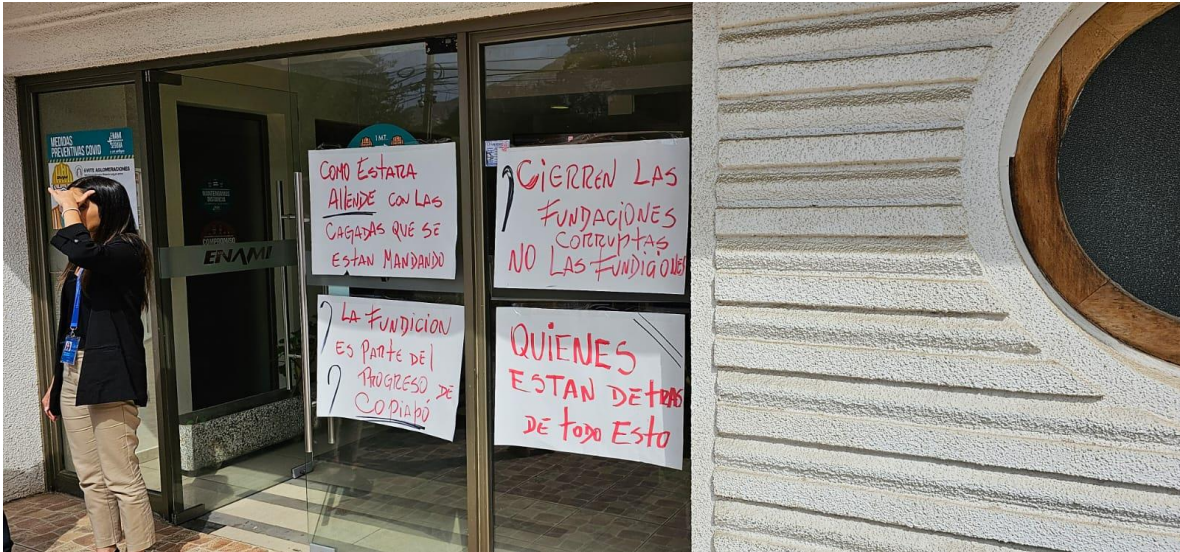 MEDIDAS
PREVENTIVAS COVID
EVITE AGLOMERACIONES
ENAMI
1 MT.
COMO EStARA
AllENDE CON LAS
CAGADAS QUE SE
EStAN MANDANDO
CIERREN LAS
FUNDACIONES
CORRUPtAS
NO LAS FUNDICIONES
LA FUNDICION
ES PARtE DEl
PROGRESO DE
COPIAPÓ
QUIENES
EStAN DEtRAS
DE tODO EStO